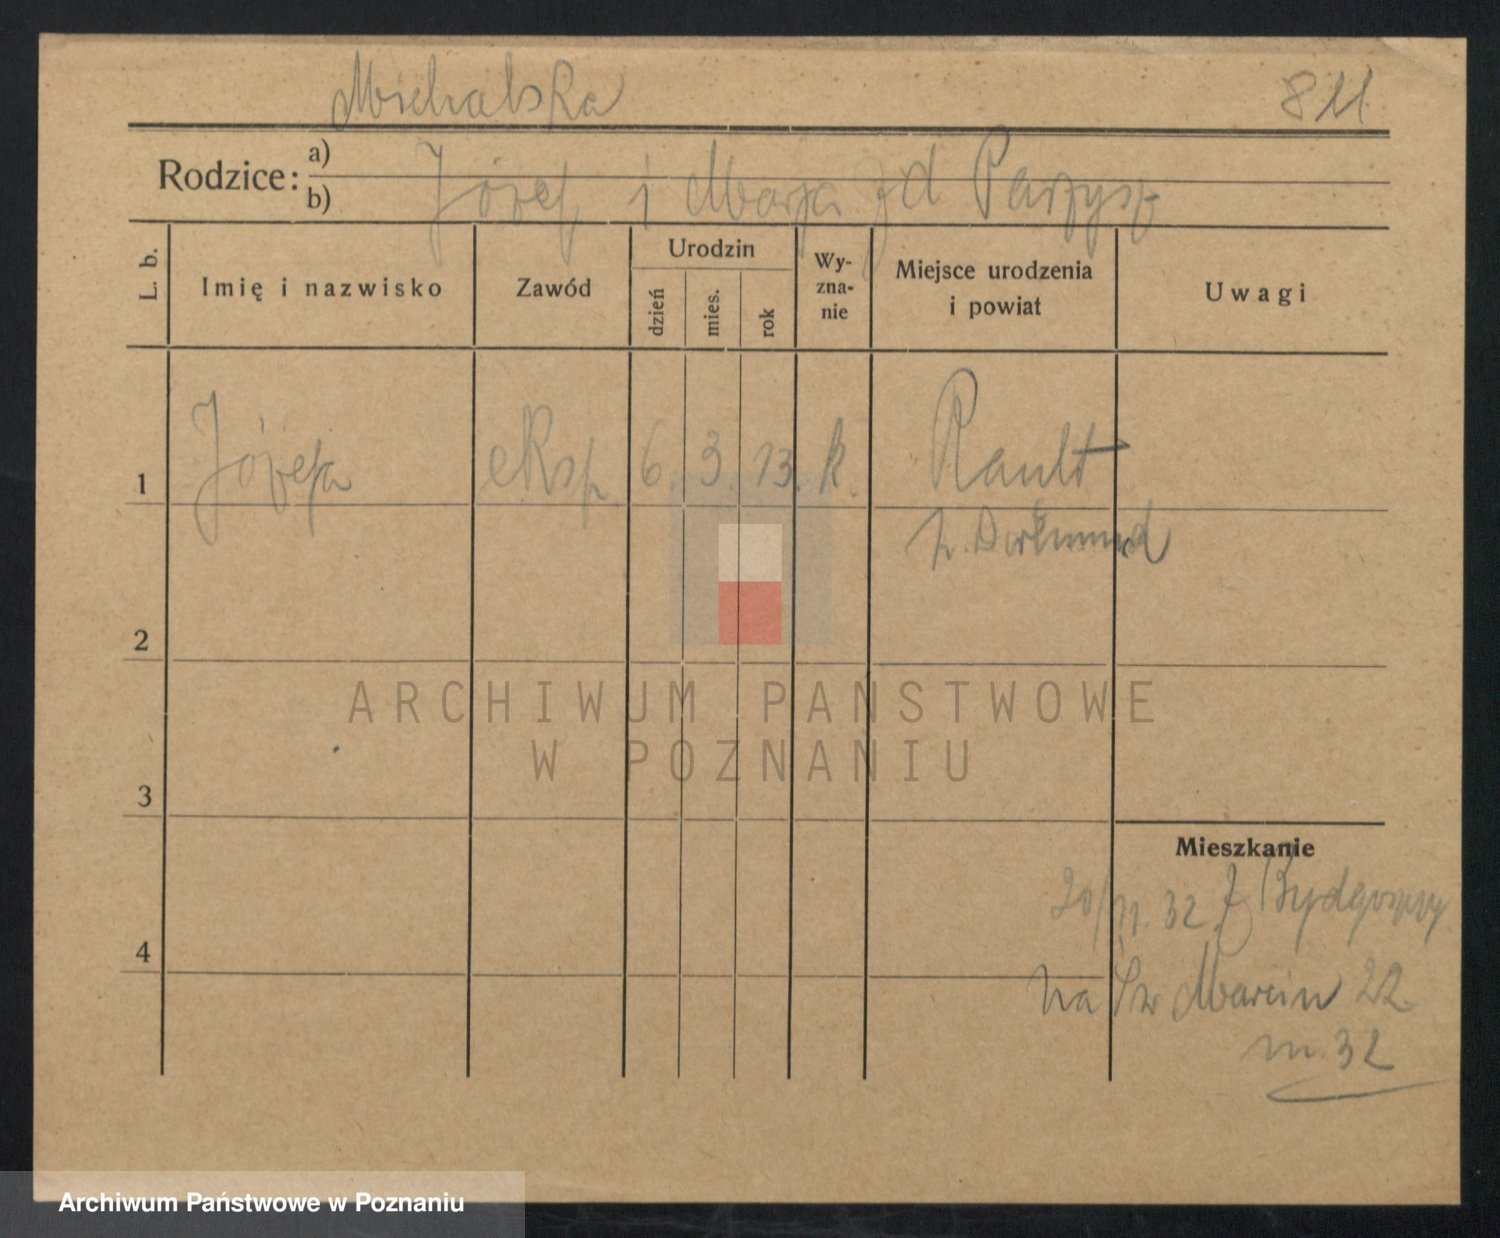 Michalska 811
Rodzice: a)
b)
Józef i Marja zd Parzysz
L. b.
Imię i nazwisko
Zawód
Urodzin
dzień
mies.
rok
Wy-
zna-
nie
Miejsce urodzenia
i powiat
Uwagi
1 Józefa eksp. 6. 3. 13. k. Rault
p. Dortmund
2
3
4
Mieszkanie
20/11. 32 z Bydgoszczy
na Św Marcin 22.
m. 32
ARCHIWUM PAŃSTWOWE
W POZNANIU
Archiwum Państwowe w Poznaniu